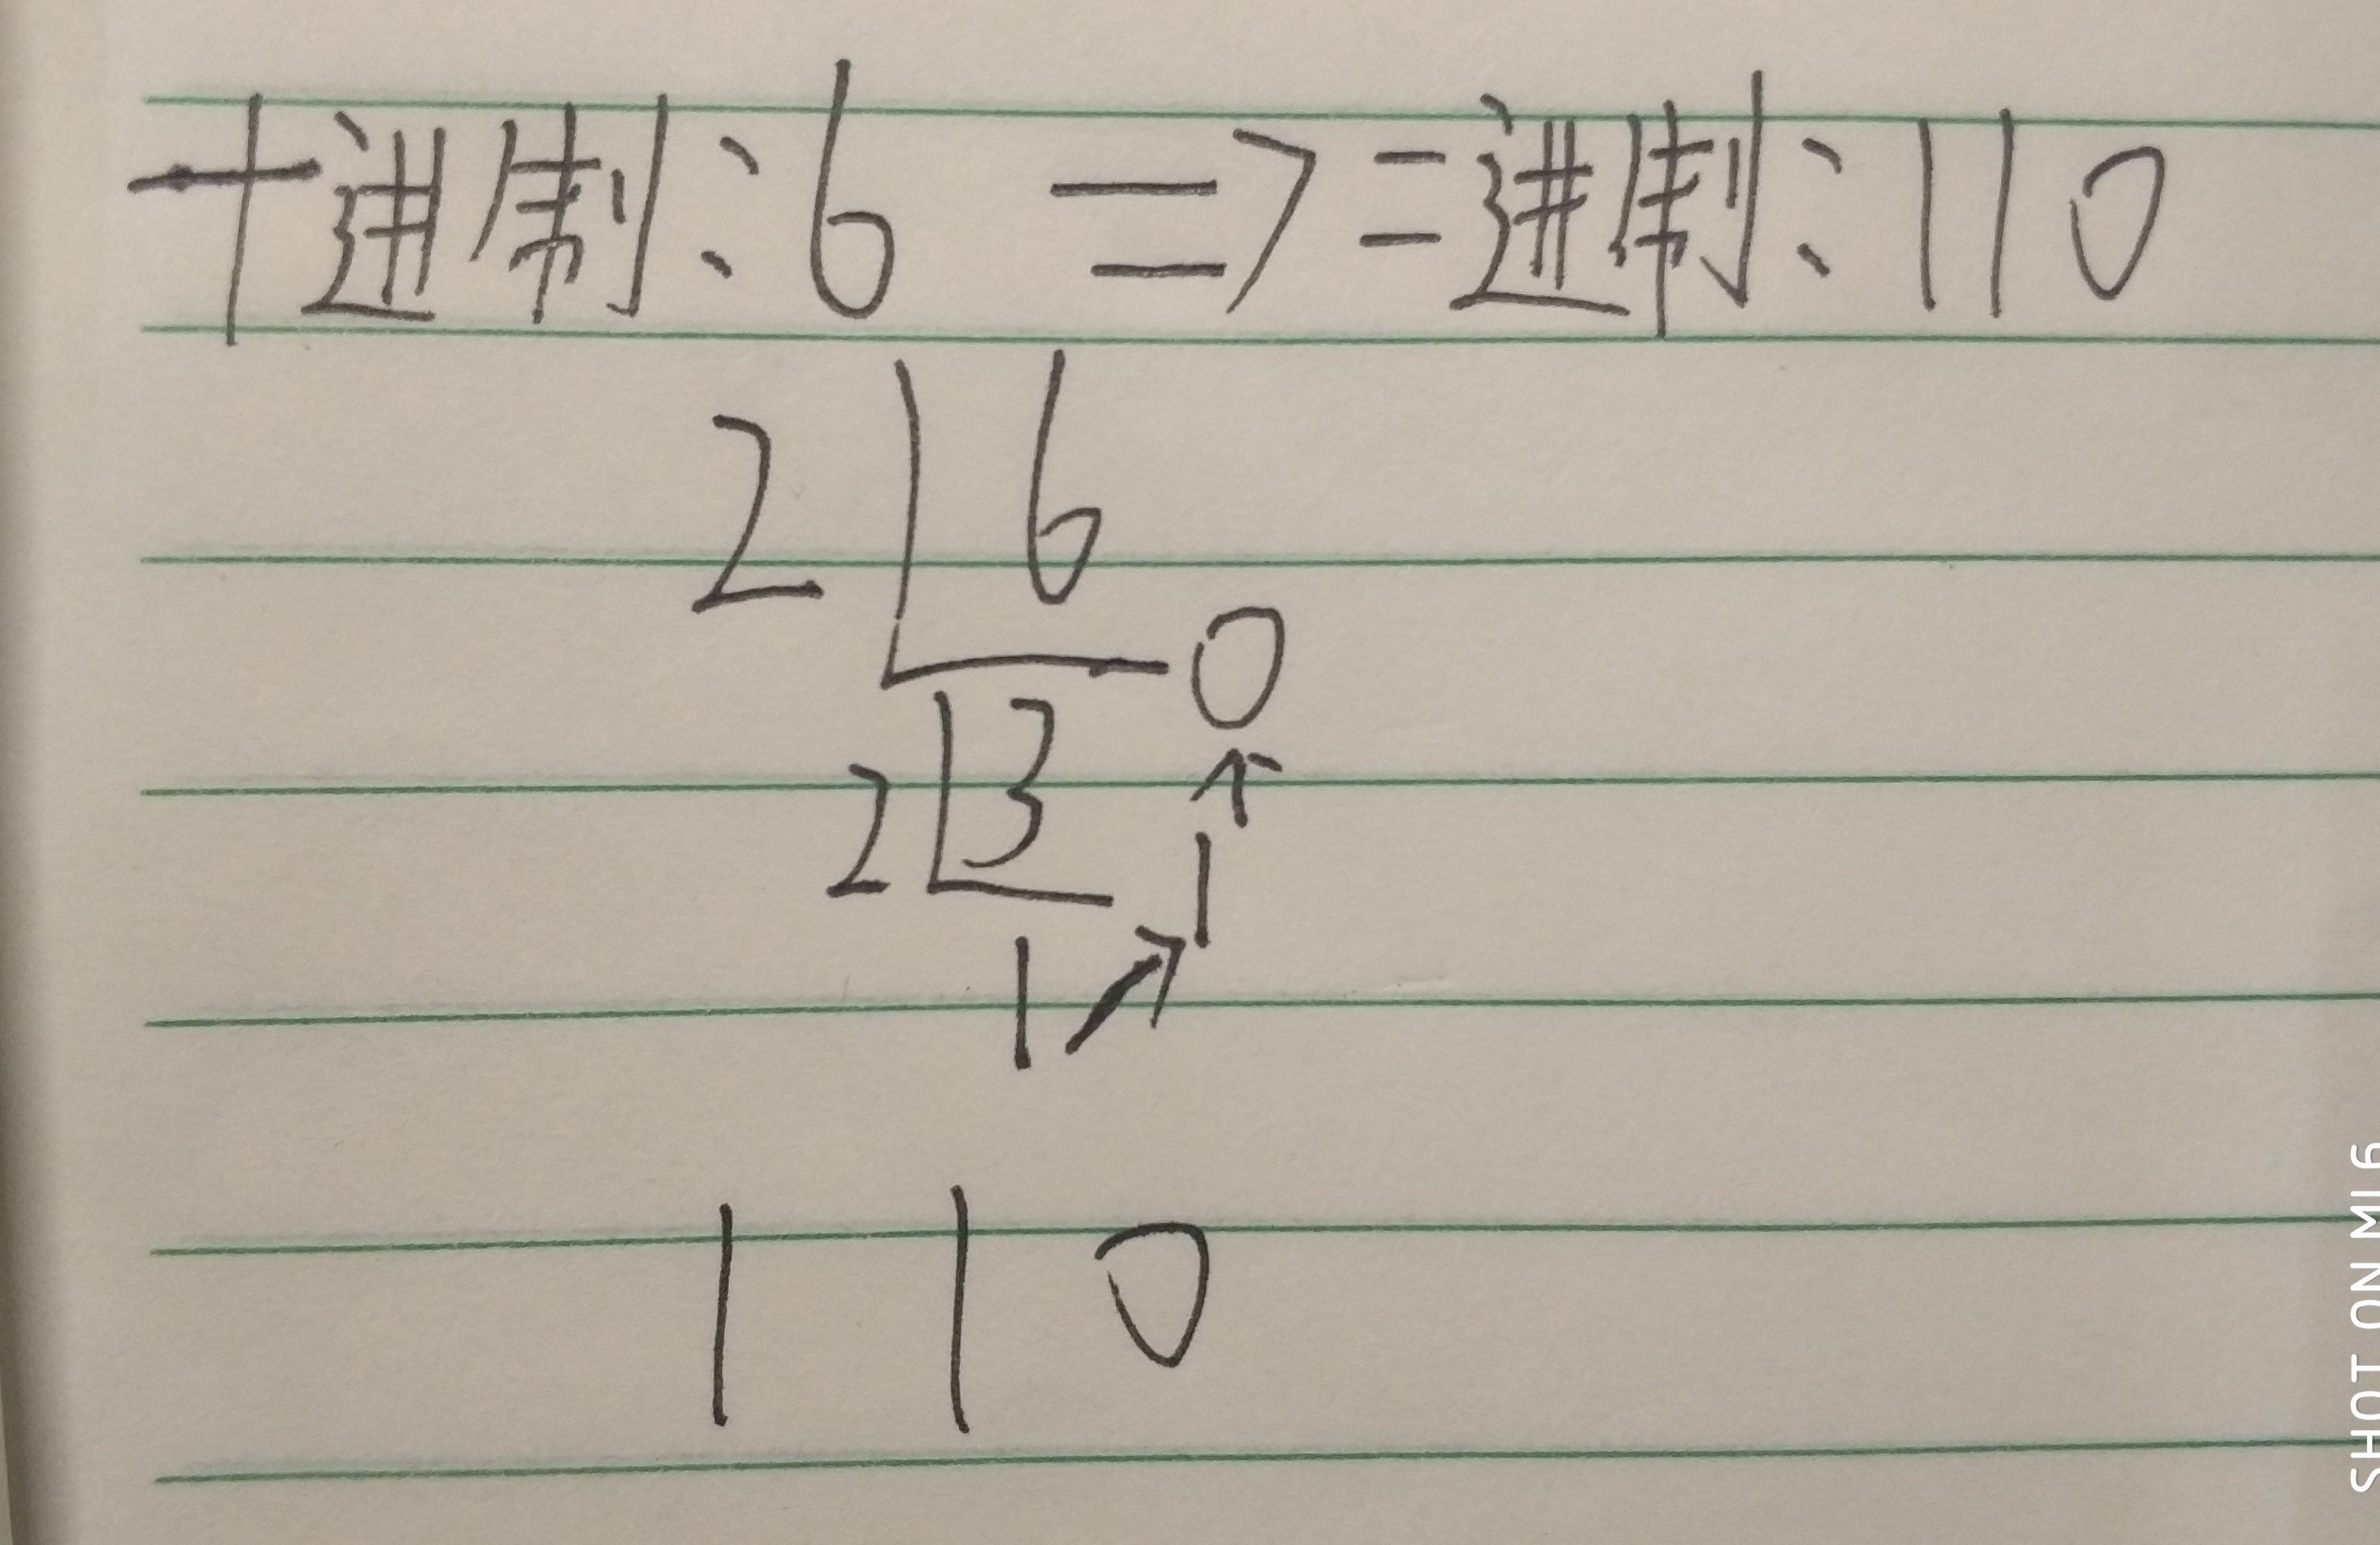 十进制:6 => 二进制:110
2 6
0
2 3
1
1
110
SHOT ON MI 6